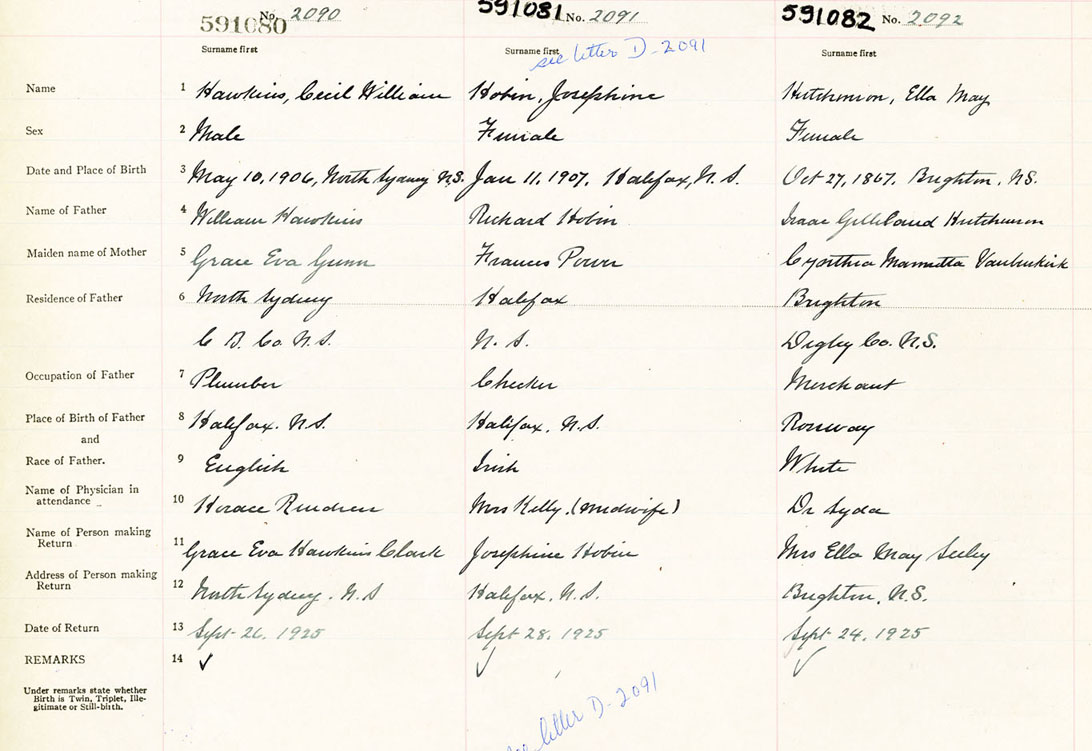 591080 No. 2090 591081 No. 2091 591082 No. 2092
Surname first Surname first Surname first
see letter D-2091
Name 1 Hawkins, Cecil William Hobin, Josephine Hutchinson, Ella May
Sex 2 Male Female Female
Date and Place of Birth 3 May 10, 1906, North Sydney N.S. Jan 11, 1907, Halifax, N.S. Oct 27, 1867, Brighton, N.S.
Name of Father 4 William Hawkins Richard Hobin Isaac Hutchinson
Maiden name of Mother 5 Grace Eva Gunn Frances Power Cynthia Vanbuskirk
Residence of Father 6 North Sydney Halifax Brighton
C. B. Co. N.S. N. S. Digby Co. N.S.
Occupation of Father 7 Plumber Checker Merchant
Place of Birth of Father 8 Halifax. N.S. Halifax, N.S. Rossway
and
Race of Father. 9 English Irish White
Name of Physician in
attendance 10 Horace Mrs Kelly. (Midwife) Dr
Name of Person making
Return 11 Grace Eva Hawkins Clark Josephine Hobin Mrs Ella May Seeley
Address of Person making
Return 12 North Sydney. N.S Halifax, N.S. Brighton, N.S.
Date of Return 13 Sept 26, 1925 Sept 28, 1925 Sept 24, 1925
REMARKS 14 ✓ ✓ ✓
Under remarks state whether
Birth is Twin, Triplet, Ille-
gitimate or Still-birth.
see letter D-2091